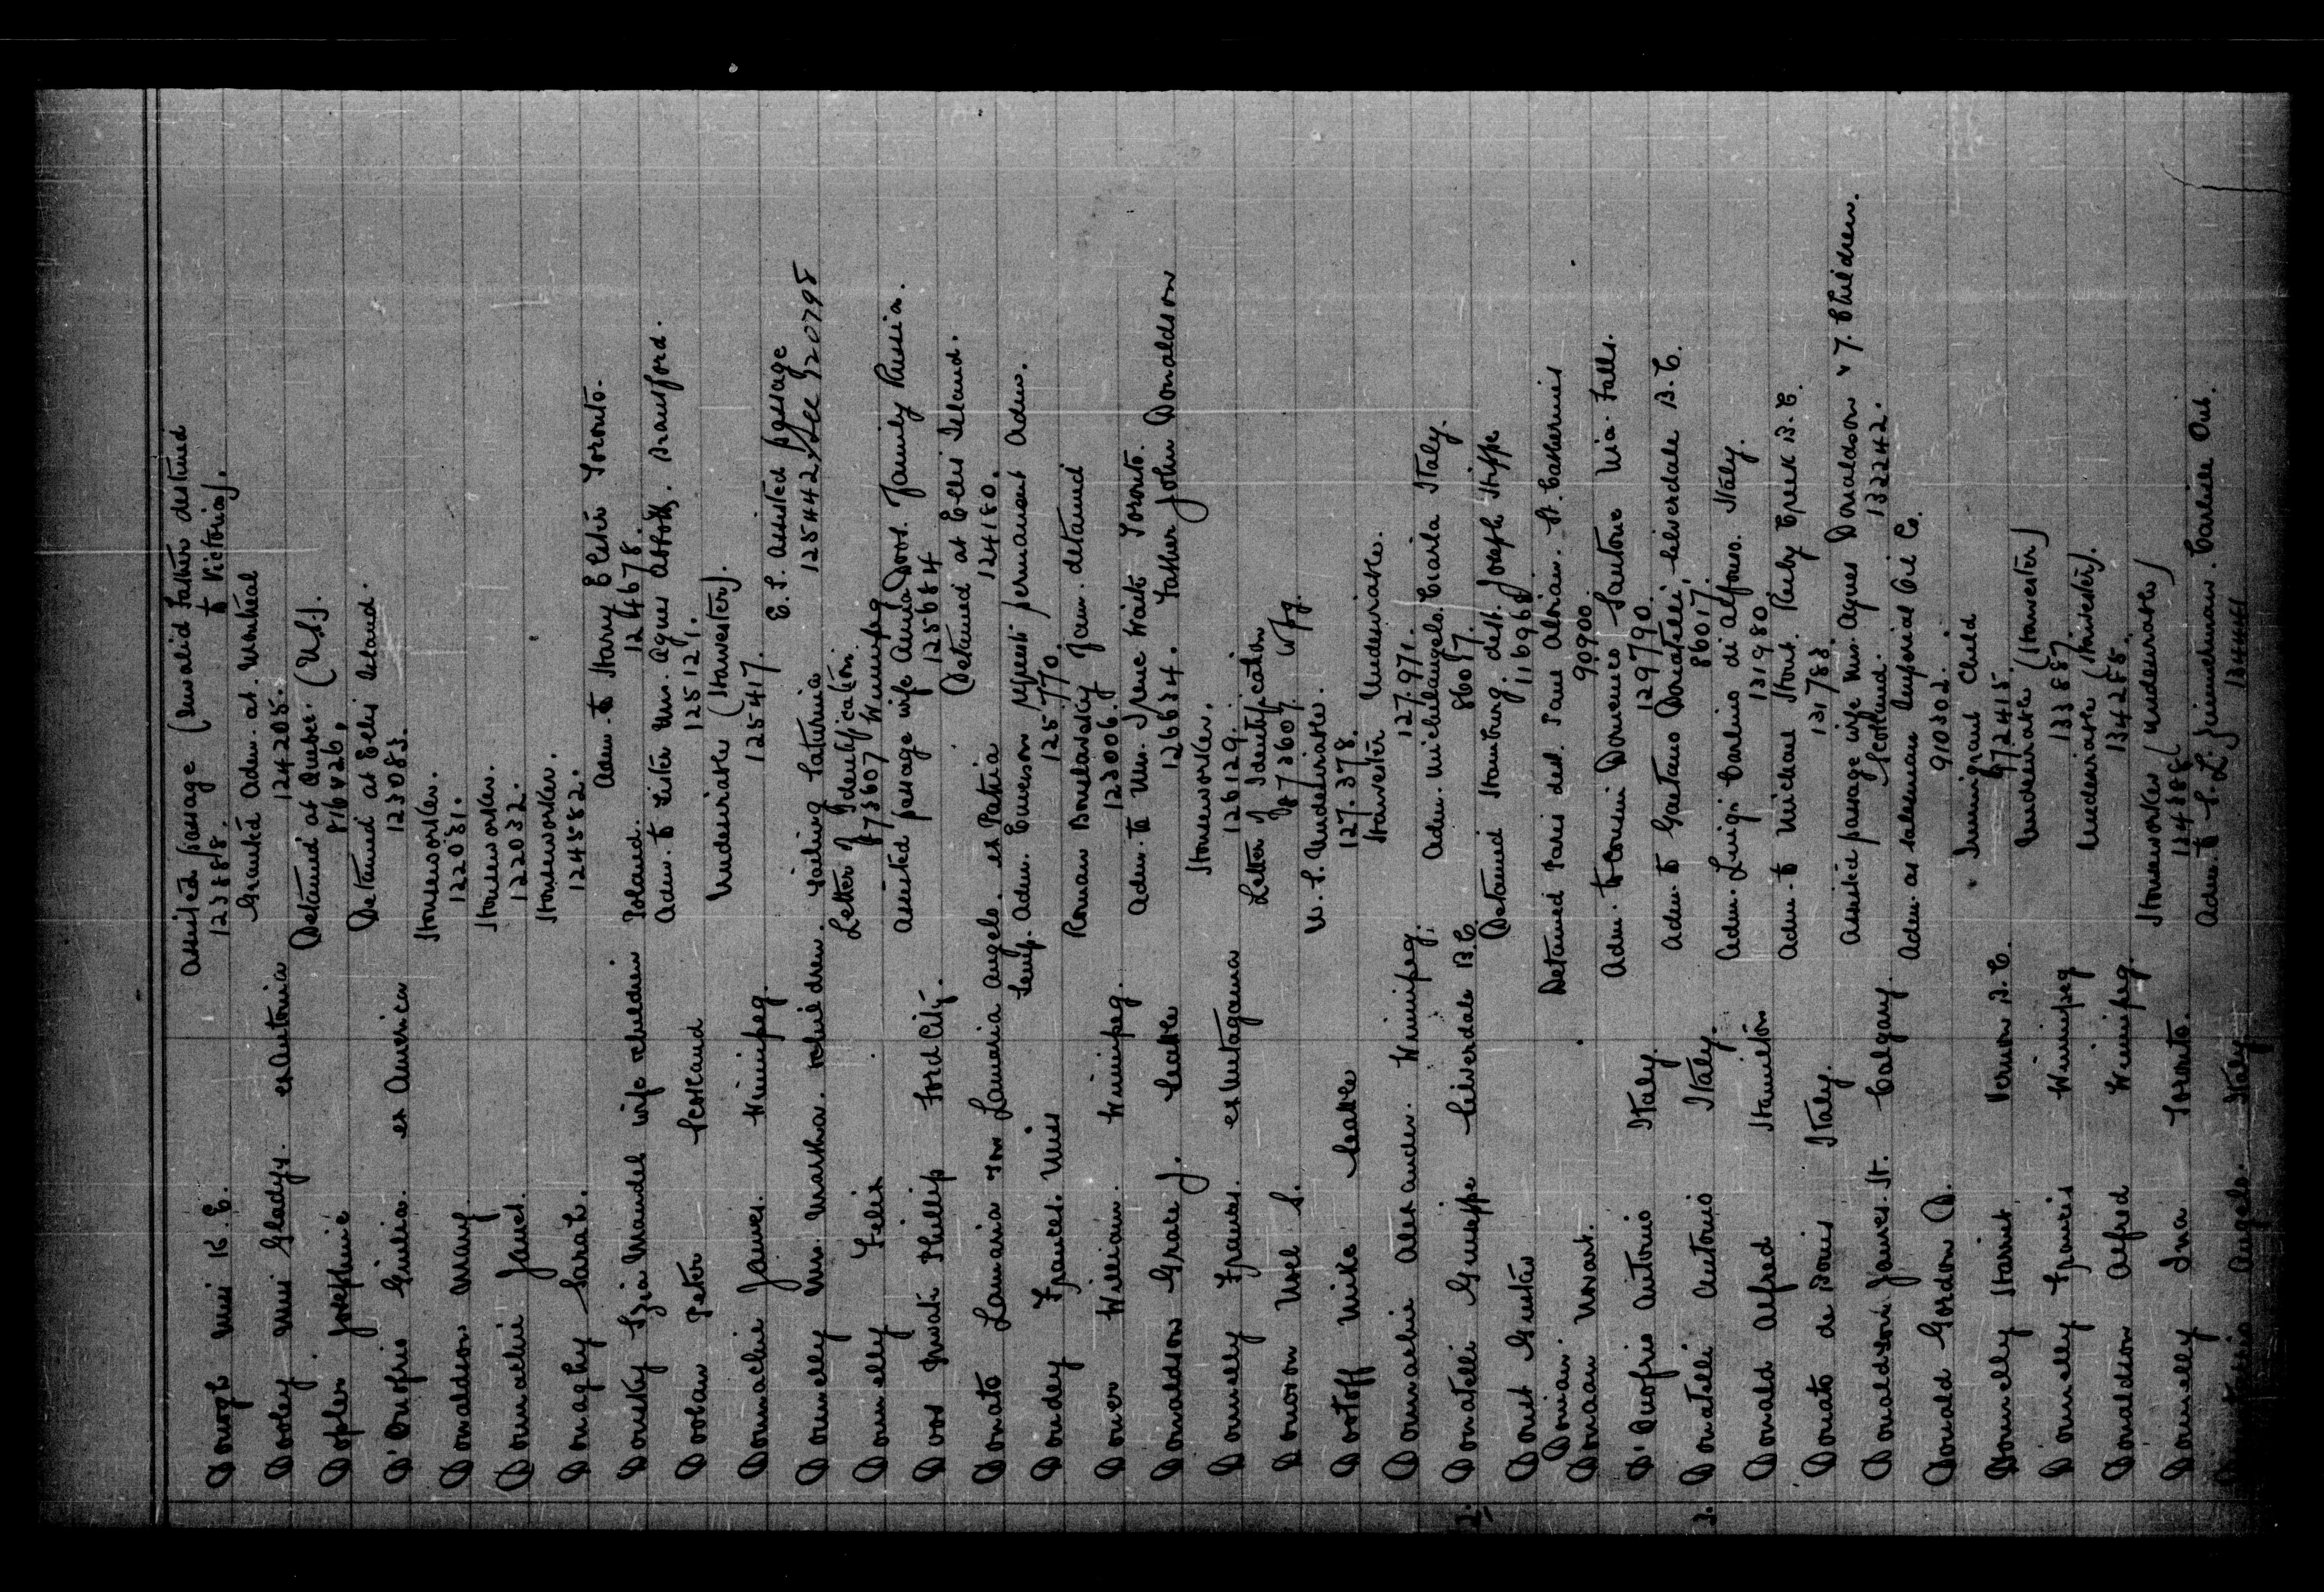 Donogh Miss K. E. Assisted passage (Invalid Father destined to Victoria).
123888.
Dooley Miss Gladys. ex Autonia Granted Adm. at Montreal
124205.
Dopler Josephine Detained at Quebec. (U.S.).
816426,
D'Onofrio Giulia. ex America Detained at Ellis Island.
123083.
Donaldson Mary. Homeworker.
122031.
Donnachie Janet. Homeworker.
122032.
Donaghy Sarah. Homeworker.
124582.
Donsky Mandel wife & children Poland. Adm. to Harry Elster Toronto.
124678.
Doolan Peter Scotland Adm. to Sister Mrs. Agnes Abbott, Brantford.
125121.
Donnachie James. Winnipeg. Undesirable (Harvester).
125417.
Donnelly Mrs. Martha. & children. Sailing Saturnia E. S. Assisted passage
125442, See 920795
Donnelly Felix Letter of Identification
873607 Winnipeg
Doos Phillip Ford City. Assisted passage wife Anna Doos. Family Russia.
125684
Donato Lamaria Angelo. ex Patria Detained at Ellis Island.
124180.
Dondey Frances. Miss Temp. Adm. Emerson requests permanent Adm.
125770.
Doner William. Winnipeg. Roman Boularsky Fam. detained
123006.
Donaldson Grace J. Seattle Adm. to Mrs. Irene Waite Toronto.
126634. Father John Donaldson
Donnelly Frances. ex Metagama Homeworker.
126129.
Donovon Noel S. Letter of Identification
873607. Wpg.
Dootoff Mike Seattle U. S. Undesirable.
127.378.
Donnachie Alexander. Winnipeg. Harvester Undesirable.
127.971.
2. Donatelli Guiseppe Silverdale B.C. Adm. Michelangelo Ciarla Italy.
86017.
Donit Gustav Detained Hamburg. dest. Joseph Hiffe
116968
Donian
Donaan Novart. Detained Paris dest. Paul Abrian. St. Catherines
90900.
D'Onofrio Antonio Italy. Adm. to cousin Domenico Santone Nia. Falls.
129790.
2. Donatelli Antonio Italy. Adm. to Gaetano Donatelli, Silverdale B.C.
86017.
Donald Alfred Hamilton Adm. Luigi Carlino di Alfonso. Italy.
131980
Donato de Bonis Italy. Adm. to Michael Stout. Ruby Creek B.C.
131783.
Donaldson James. St. Calgary. Assisted passage wife Mrs. Agnes Donaldson & 7. Children.
Scotland. 132242.
Donald Gordon D. Adm. as salesman Imperial Oil Co.
910302.
Donnelly Harriet Vernon B.C. Immigrant Child
972415.
Donnelly Francis Winnipeg Undesirable (Harvester)
133887.
Donaldson Alfred Winnipeg. Undesirable (Harvester).
134255.
Donnelly Ina Toronto. Homeworker (Undesirable)
124388.
Angelo. Italy Adm. to S. L. Carlisle Ont.